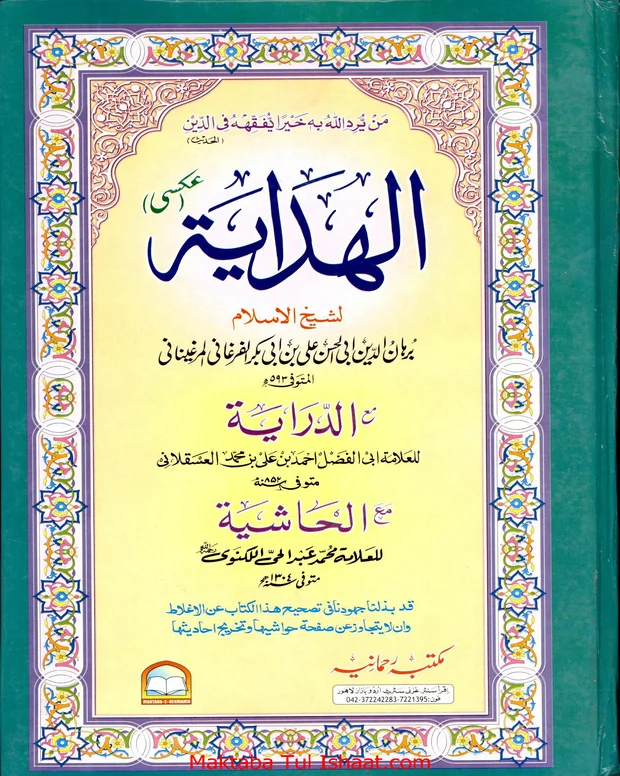 مَن يُّرِدِ اللهُ بِه خَيرًا يُّفَقِّههُ فِي الدِّينِ
(الحديث)
الهداية
(عكسى)
لشيخ الاسلام
برهان الدين ابى الحسن على بن ابى بكر الفرغانى المرغينانى
المتوفى ٥٩٣ھ
مع الدّراية
للعلامة ابى الفضل احمد بن على بن محمد العسقلانى
متوفى ٨٥٢ھ
مع الحاشية
للعلامة محمد عبد الحى اللكنوى
متوفى ١٣٠٤ھ
قد بذلنا جهودنا فى تصحيح هذا الكتاب عن الاغلاط
وان لا يتجاوز عن صفحة حواشيها وتخريج احاديثها
مكتبہ رحمانیہ
اِقرأ سنٹر غزنی سٹریٹ اردو بازار لاہور
فون: 042-37224228-37221395
MAKTABA-E-REHMANIA
Maktaba Tul Ishaat.com